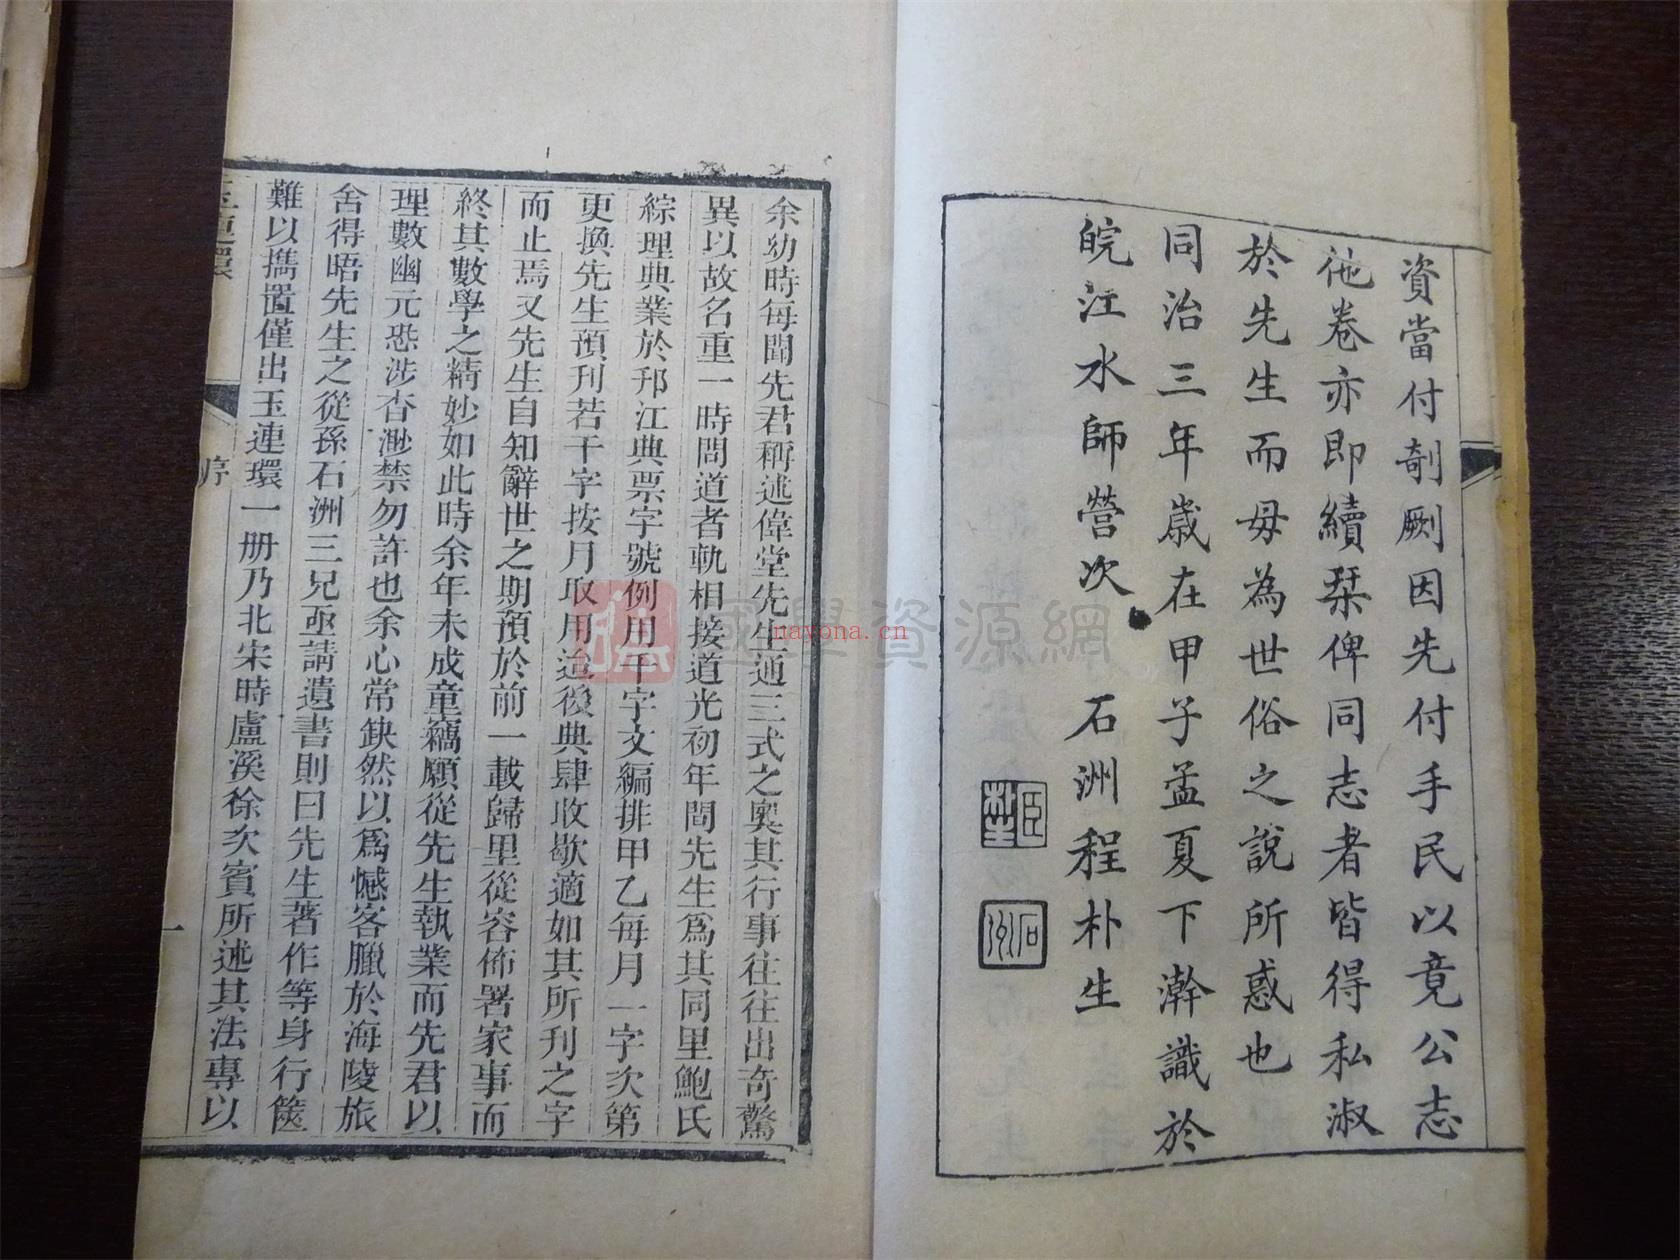 資當付剞劂因先付手民以竟公志
他卷亦即續栞俾同志者皆得私淑
於先生而毋為世俗之說所惑也
同治三年歲在甲子孟夏下澣識於
皖江水師營次 石洲程朴生
石洲
余幼時每聞先君稱述偉堂先生通三式之奧其行事往往出奇驚
異以故名重一時問道者軌相接道光初年間先生爲其同里鮑氏
綜理典業於邗江典票字號例用千字文編排甲乙每月一字次第
更換先生預刊若干字按月取用迨後典肆收歇適如其所刊之字
而止焉又先生自知辭世之期預於前一載歸里從容佈署家事而
終其數學之精妙如此時余年未成童竊願從先生執業而先君以
理數幽元恐涉杳渺禁勿許也余心常缺然以爲憾客臘於海陵旅
舍得晤先生之從孫石洲三兄亟請遺書則曰先生著作等身行篋
難以擕置僅出玉連環一册乃北宋時盧溪徐次賓所述其法專以
玉連環 序 一
國學資源網
nayona.cn